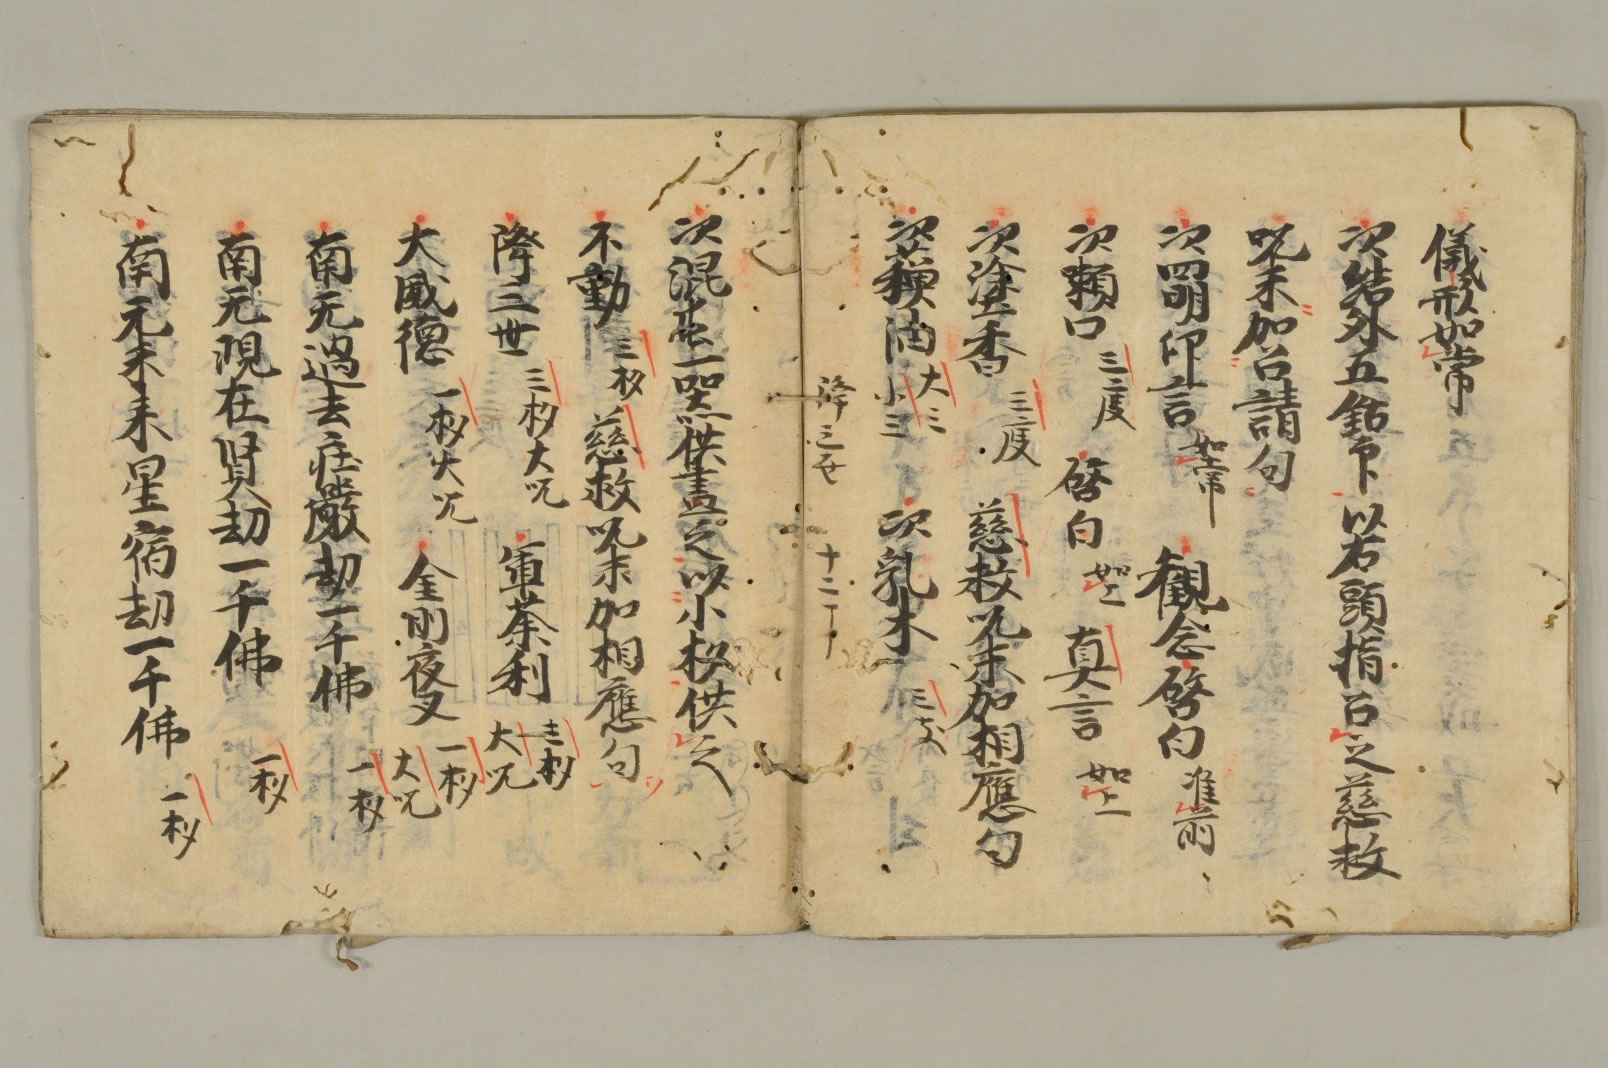 儀形如常
次結外五鈷印以右頭指召之慈救
呪末加召請句
次四明印言如常 観念啓白准前
次嗽口三度 啓白如上 真言如上
次塗香三度 慈救呪末加相應句
次蘓油大三小三 次乳木三支
降三世 十二丁
次混屯一器供盡之以小杓供之
不動三杓 慈救呪末加相應句
降三世三杓大呪 軍荼利三杓大呪
大威徳一杓大呪 金剛夜叉一杓大呪
南无過去庄嚴劫一千佛一杓
南无現在賢劫一千佛一杓
南无未来星宿劫一千佛一杓